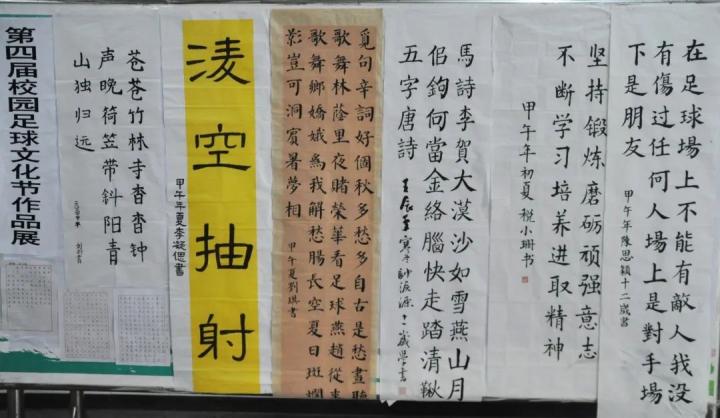 第四届校园足球文化节作品展
苍苍竹林寺杳杳钟
声晚荷笠带斜阳青
山独归远
淩空抽射
甲午年夏李凝偲書
覓句辛詞好個秋多愁多自古是愁畫聽
歌舞林蔭里夜賭榮華看足球燕趙從來
歌舞鄉嬌娥為我解愁腸長空夏日斑斕
影豈可洞賓暑夢相
甲午夏劉琪書
馬詩李賀大漠沙如雪燕山月
佀鉤何當金絡腦快走踏清鞦
五字唐詩
坚持锻炼磨砺顽强意志
不断学习培养进取精神
甲午年初夏 税小珊书
在足球場上不能有敵人我没
有傷过任何人場上是對手場
下是朋友
甲午年陳思穎十二歲書